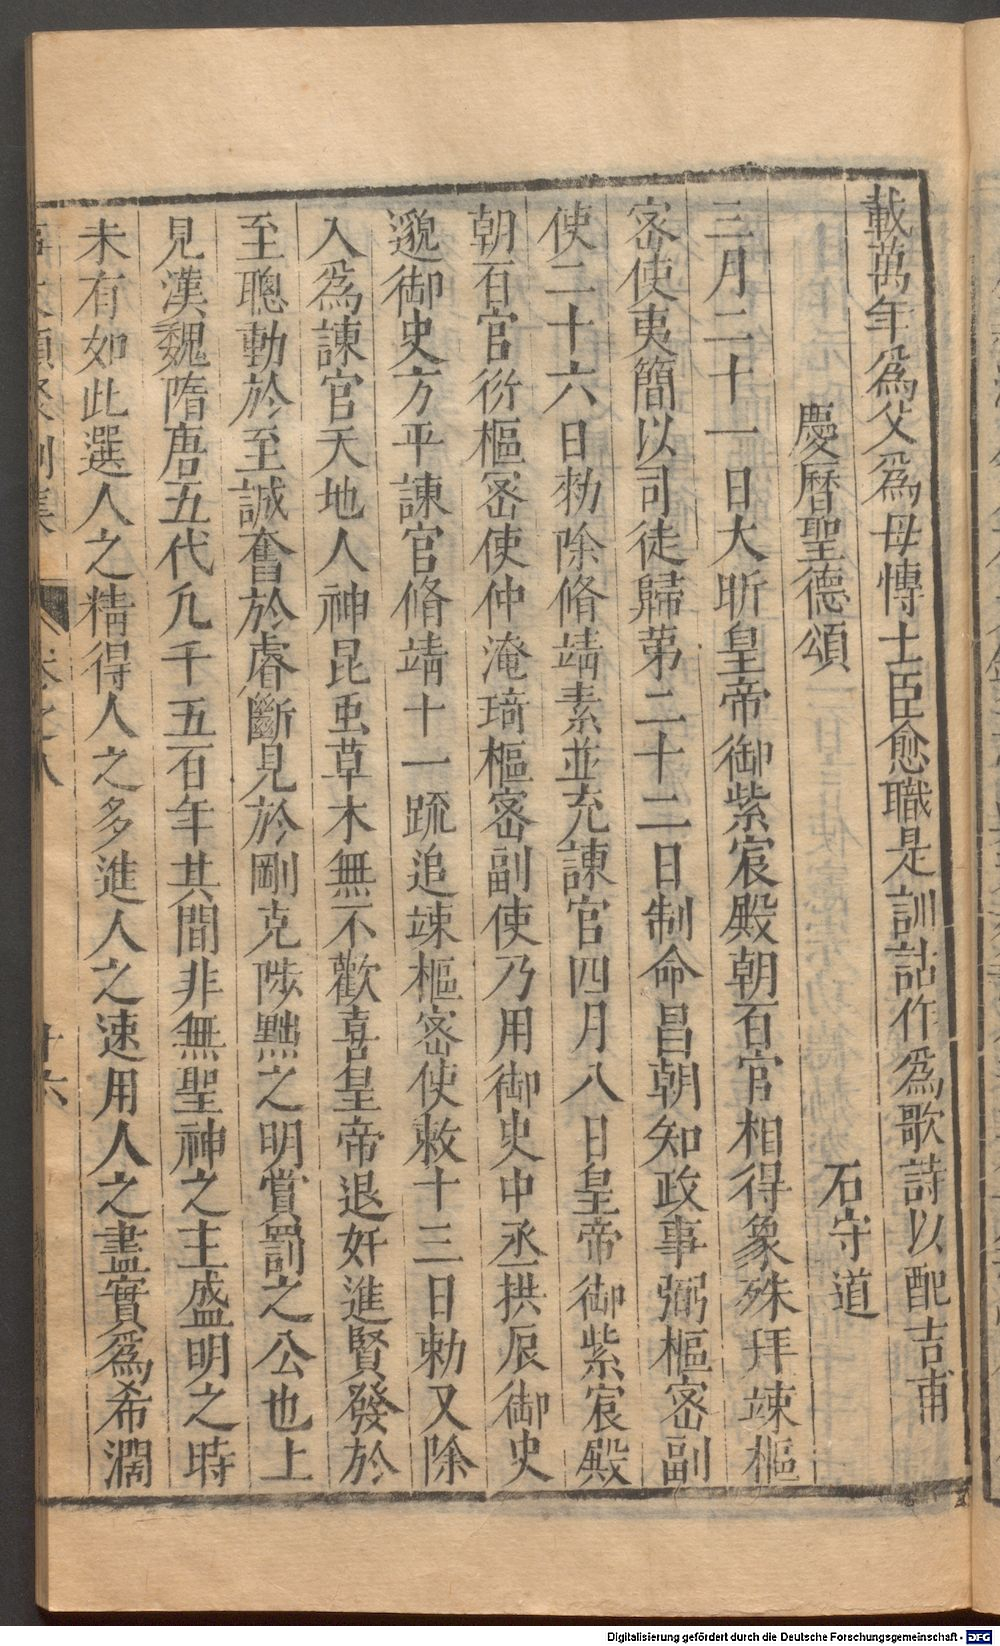 載萬年爲父爲母愽士臣愈職是訓詁作爲歌詩以配吉甫
慶曆聖德頌
石守道
三月二十一日大昕皇帝御紫宸殿朝百官相得象殊拜竦樞
宻使夷簡以司徒歸第二十二日制命昌朝知政事弼樞宻副
使二十六日勑除脩靖素並充諫官四月八日皇帝御紫宸殿
朝百官衍樞宻使仲淹琦樞宻副使乃用御史中丞拱辰御史
邈御史方平諫官脩靖十一䟽追竦樞宻使敕十三日勅又除
入爲諫官天地人神昆虫草木無不歡喜皇帝退奸進賢發於
至聰動於至誠奮於睿斷見於剛克陟黜之明賞罰之公也上
見漢魏隋唐五代凢千五百年其間非無聖神之主盛明之時
未有如此選人之精得人之多進人之速用人之盡實爲希濶
卷之八
十六
Digitalisierung gefördert durch die Deutsche Forschungsgemeinschaft - DFG